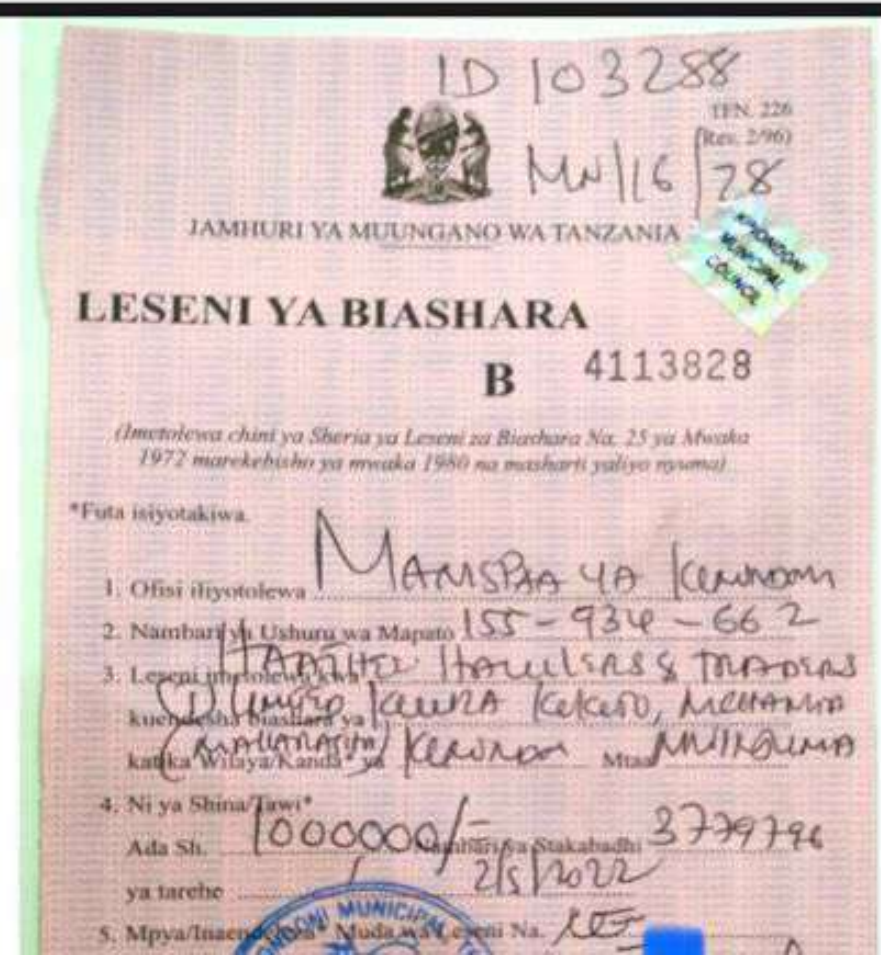 ID 103288
TFN. 226
(Rev. 2/96)
MN/16/28
JAMHURI YA MUUNGANO WA TANZANIA
KINONDONI
MUNICIPAL
COUNCIL
LESENI YA BIASHARA
B 4113828
(Imetolewa chini ya Sheria ya Leseni za Biashara Na. 25 ya Mwaka
1972 marekebisho ya mwaka 1980 na masharti yaliyo nyuma)
*Futa isiyotakiwa.
1. Ofisi iliyotolewa MANISPAA YA KINONDONI
2. Nambari ya Ushuru wa Mapato 155-934-662
3. Leseni imetolewa kwa HAULIERS & TRADERS
(T) LIMITED
kuendesha biashara ya
katika Wilaya/Kanda* ya KINONDONI Mtaa
4. Ni ya Shina/Tawi*
Ada Sh. 1000000/= Nambari ya Stakabadhi 3779796
ya tarehe 2/5/2022
KINONDONI MUNICIPAL
5. Mpya/Inaendelea* Muda wa Leseni Na.